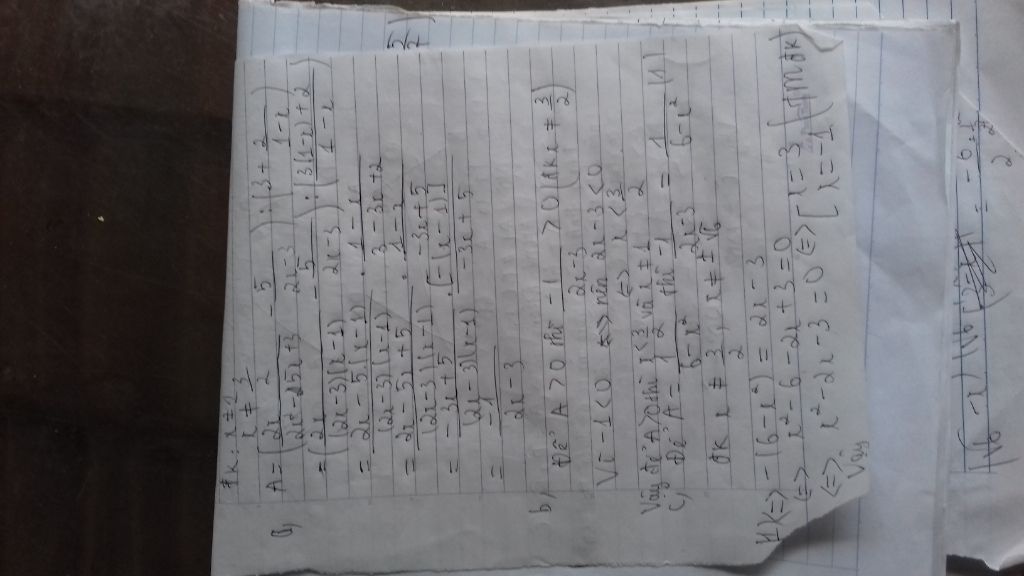 đk: x ≠ 1
x ≠ 3/2
a, A = (2x/(2x²-5x+3) - 5/(2x-3)) : (3 + 2/(1-x))
= (2x/((2x-3)(x-1)) - 5/(2x-3)) : (3(1-x)+2)/(1-x)
= (2x-5(x-1))/((2x-3)(x-1)) · (1-x)/(3-3x+2)
= (2x-5x+5)/((2x-3)(x-1)) · (1-x)/(-3x+5)
= (-3x+5)/((2x-3)(x-1)) · [-(x-1)]/(-3x+5)
= -1/(2x-3)
b, Để A > 0 thì -1/(2x-3) > 0 (đk x ≠ 3/2)
Vì -1 < 0 nên 2x-3 < 0
<=> x < 3/2
Vậy để A > 0 thì x < 3/2 và x ≠ 1
c, Để A = 1/(6-x²) thì -1/(2x-3) = 1/(6-x²) (1)
đk x ≠ 3/2, x ≠ ±√6
=> -(6-x²) = 2x-3
<=> x²-6-2x+3=0
<=> x²-2x-3=0 <=> [x=3 x=-1 (TMĐK)
Vậy